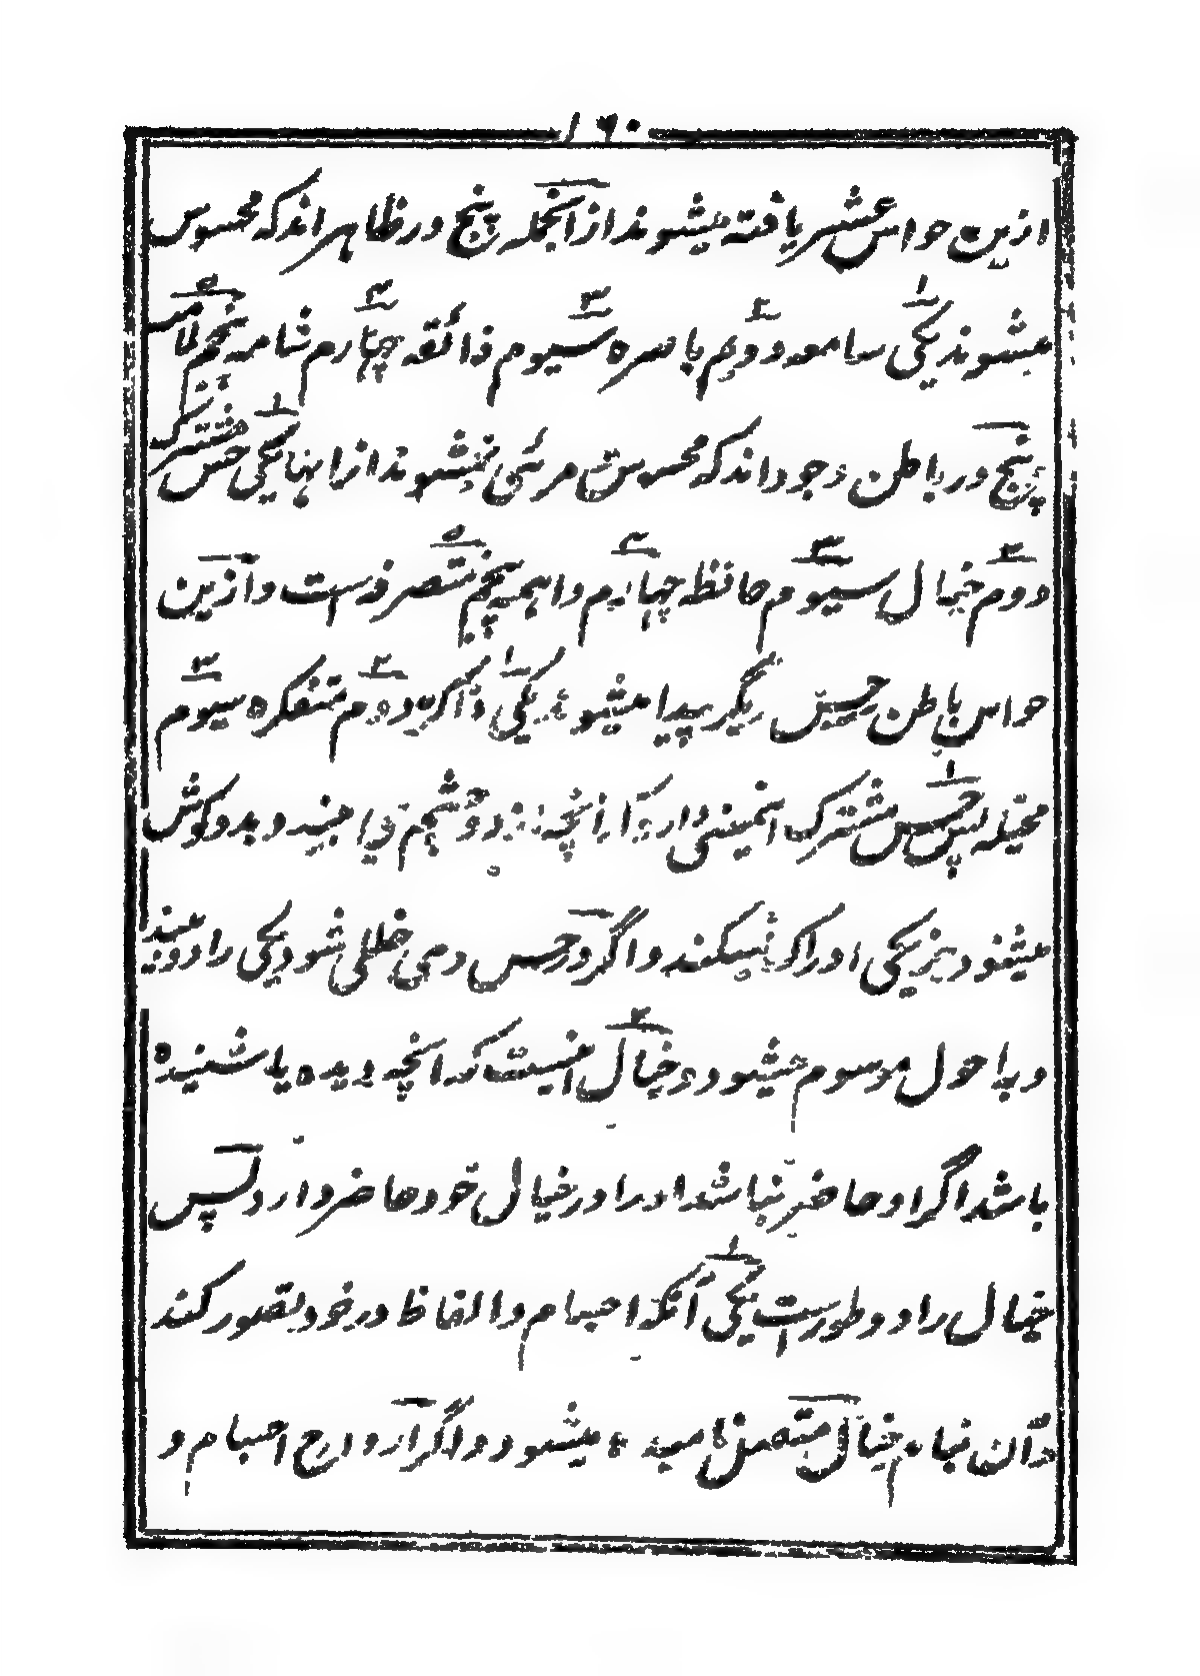 ۱۶۰
ازین حواس عشر یافته میشوند از انجمله پنج در ظاهر اند که محسوس
میشوند یکی سامعه دوم باصره سیوم ذائقه چهارم شامه پنجم لامسه
پنج در باطن وجود اند که محسوس مرئی نمیشوند از اینها یکی حس مشترک
دوم خیال سیوم حافظه چهارم واهمه پنجم متصرفه است و ازین
حواس باطن حسین دیگر پیدا میشوند یکی ذاکره دوم متفکره سیوم
مخیله پس حس مشترک اینمعنی دارد از انچه دو چشم می بیند و بدو گوش
میشنود نیز یکی ادراک میکند و اگر در حس دمی خللی شود یکی را دو بیند
و برا حول موسوم میشود و خیال انیست که انچه دیده یا شنیده
باشد اگر او حاضر نباشد او را در خیال خود حاضر دارد پس
خیال را دو طور است یکی آنکه اجسام و الفاظ در خود تصور کند
آن بنام خیال متصل نامیده میشود و اگر از ارواح اجسام و